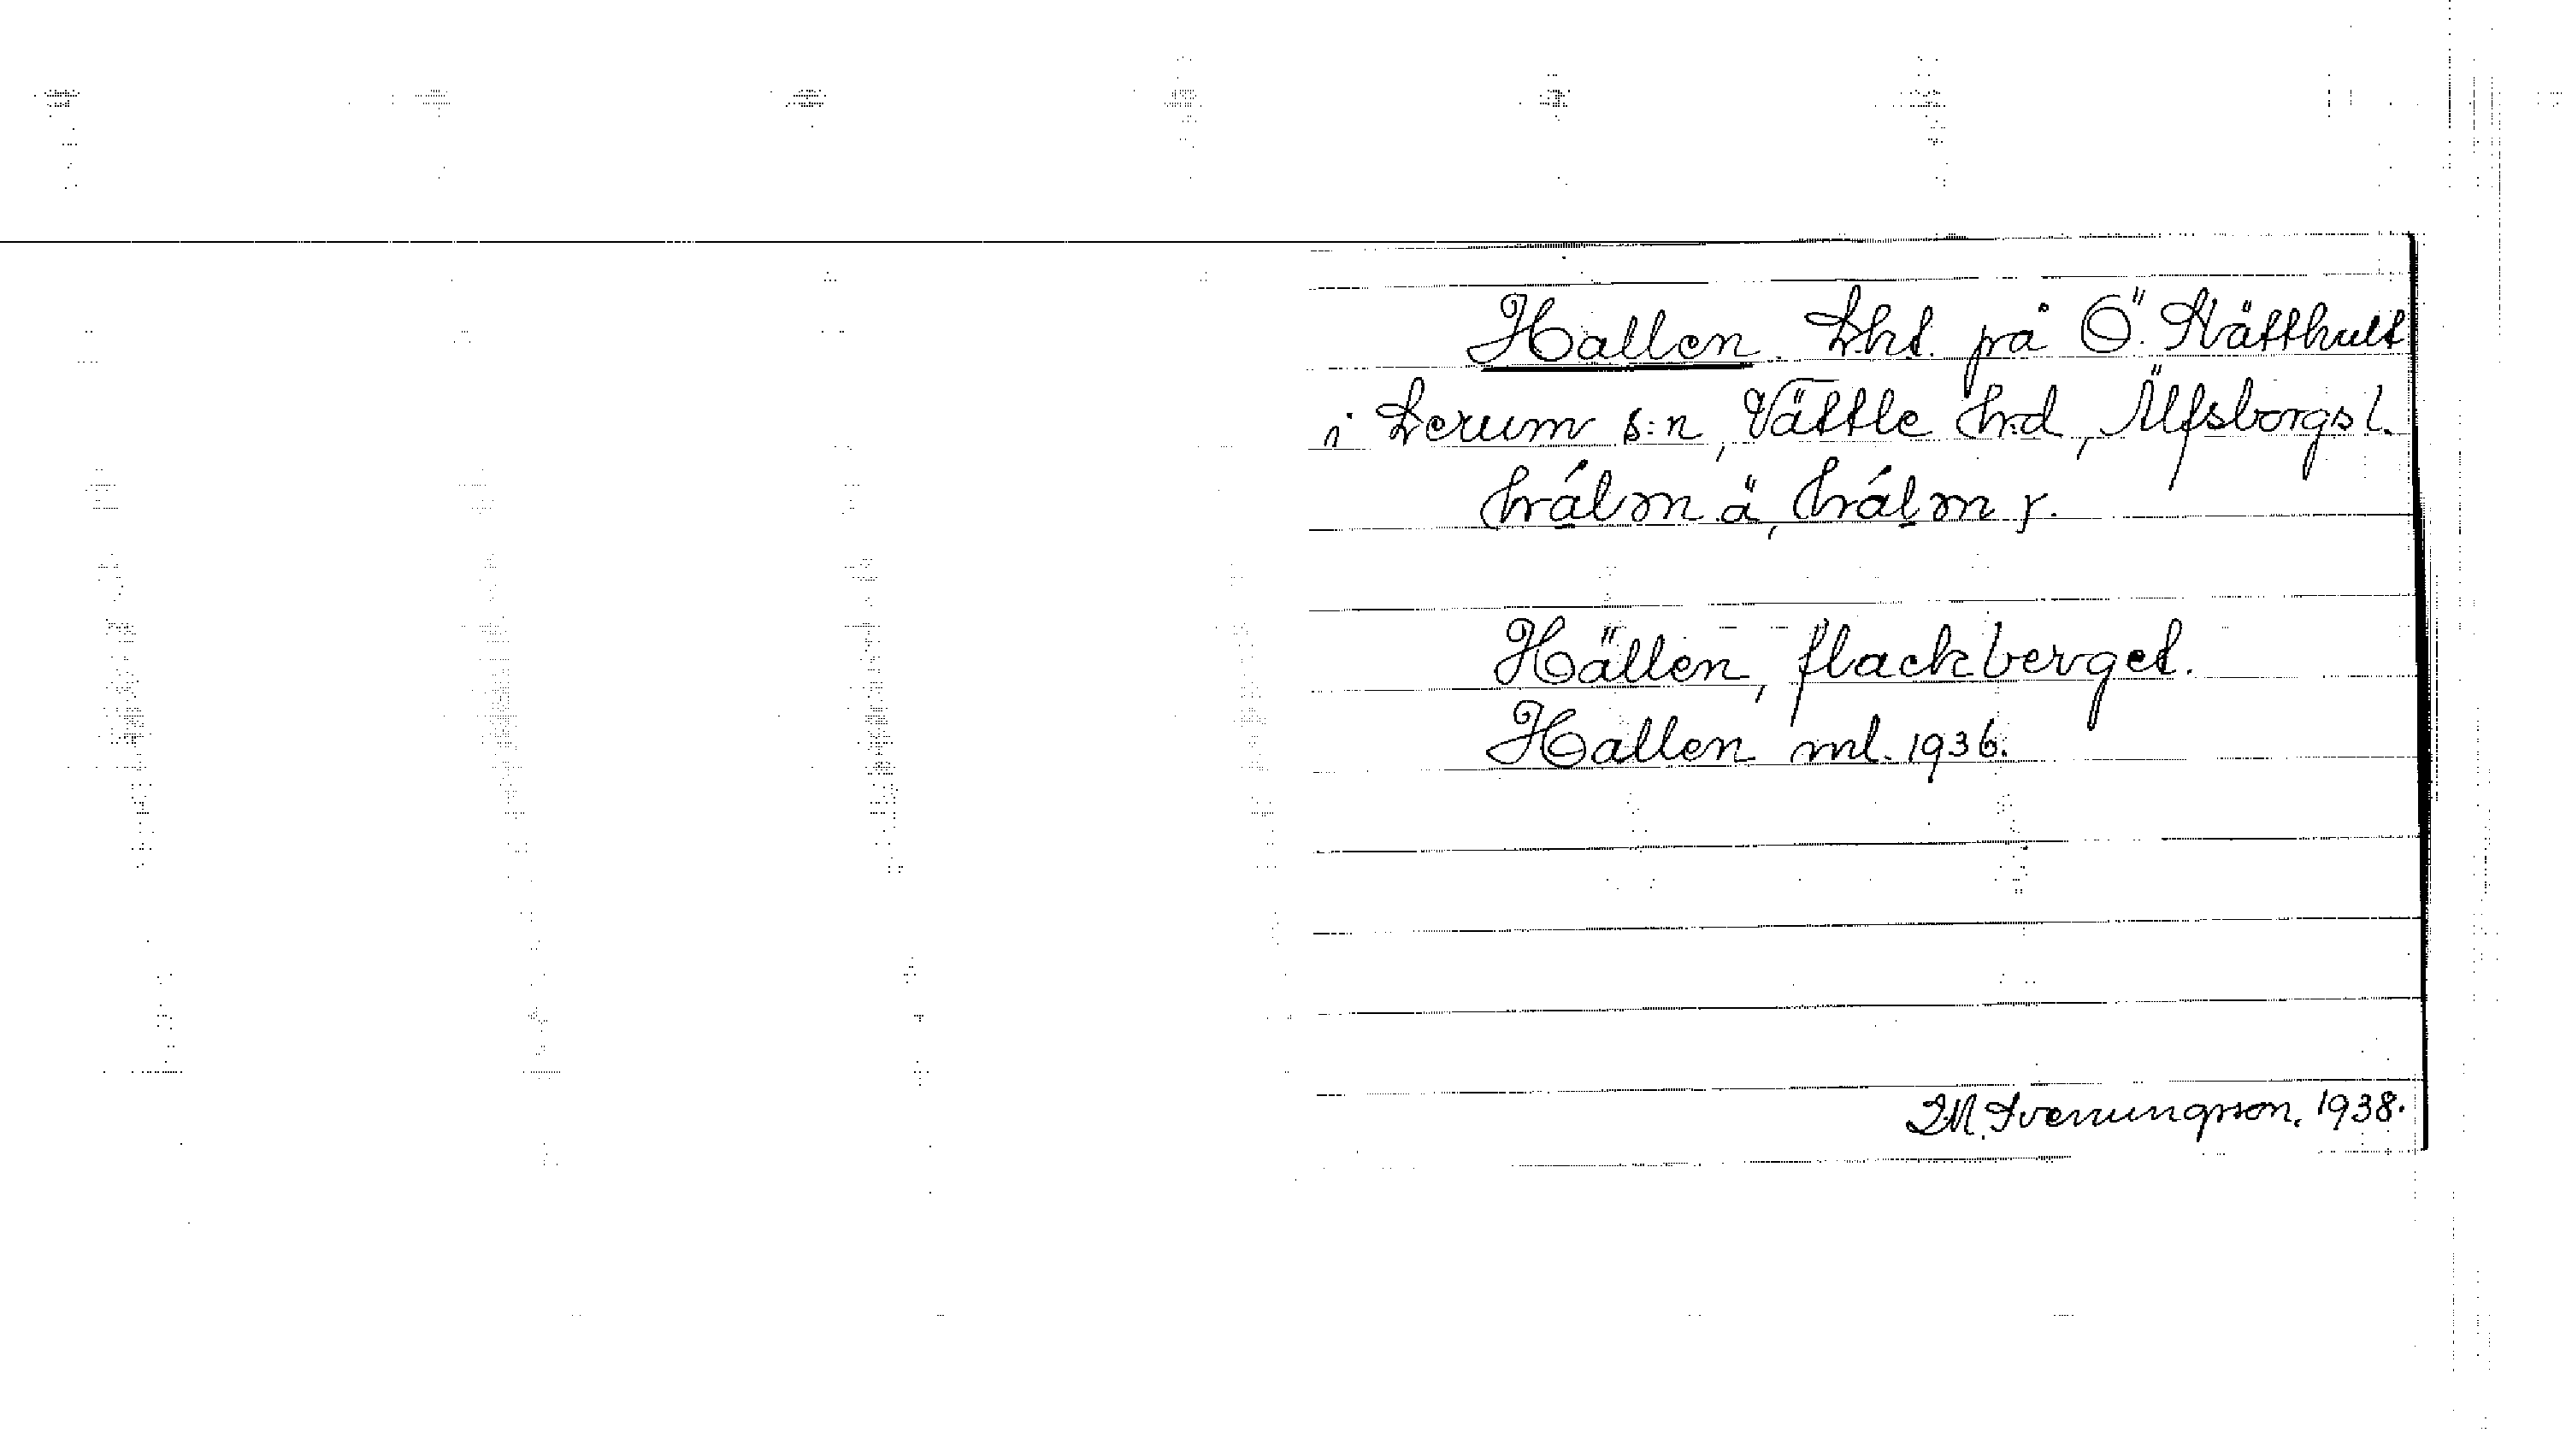 Hallen. Lht. på Ö. Stätthult
i Lerum s:n, Vättle h:d, Älfsborgs l.
hálm ä, hálm y.
Hällen, flackberget.
Hallen ml. 1936.
I.M. Svenungsson. 1938.